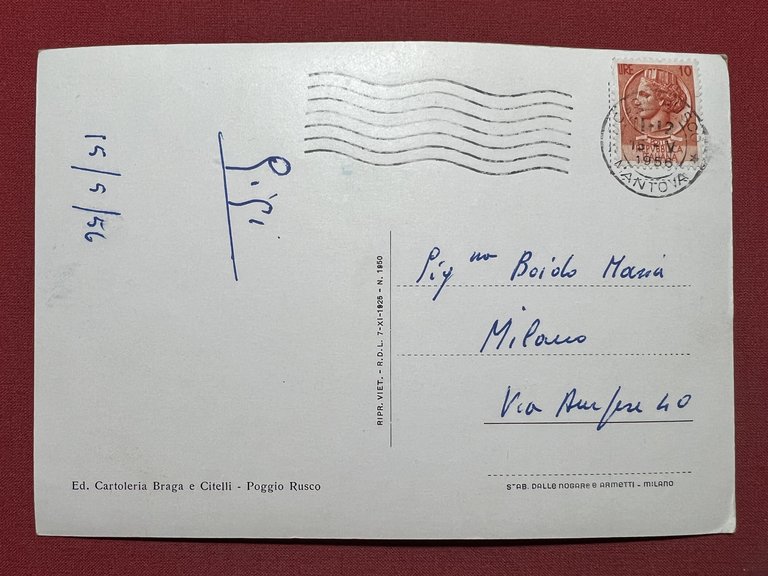 15/5/56
Pipi
LIRE 10
11-12
15 V
1956
MANTOVA
Signa Boido Maria
Milano
Via 40
RIPR. VIET. - R.D.L. 7-XI-1925 - N. 1950
Ed. Cartoleria Braga e Citelli - Poggio Rusco
STAB. DALLE NOGARE E ARMETTI - MILANO